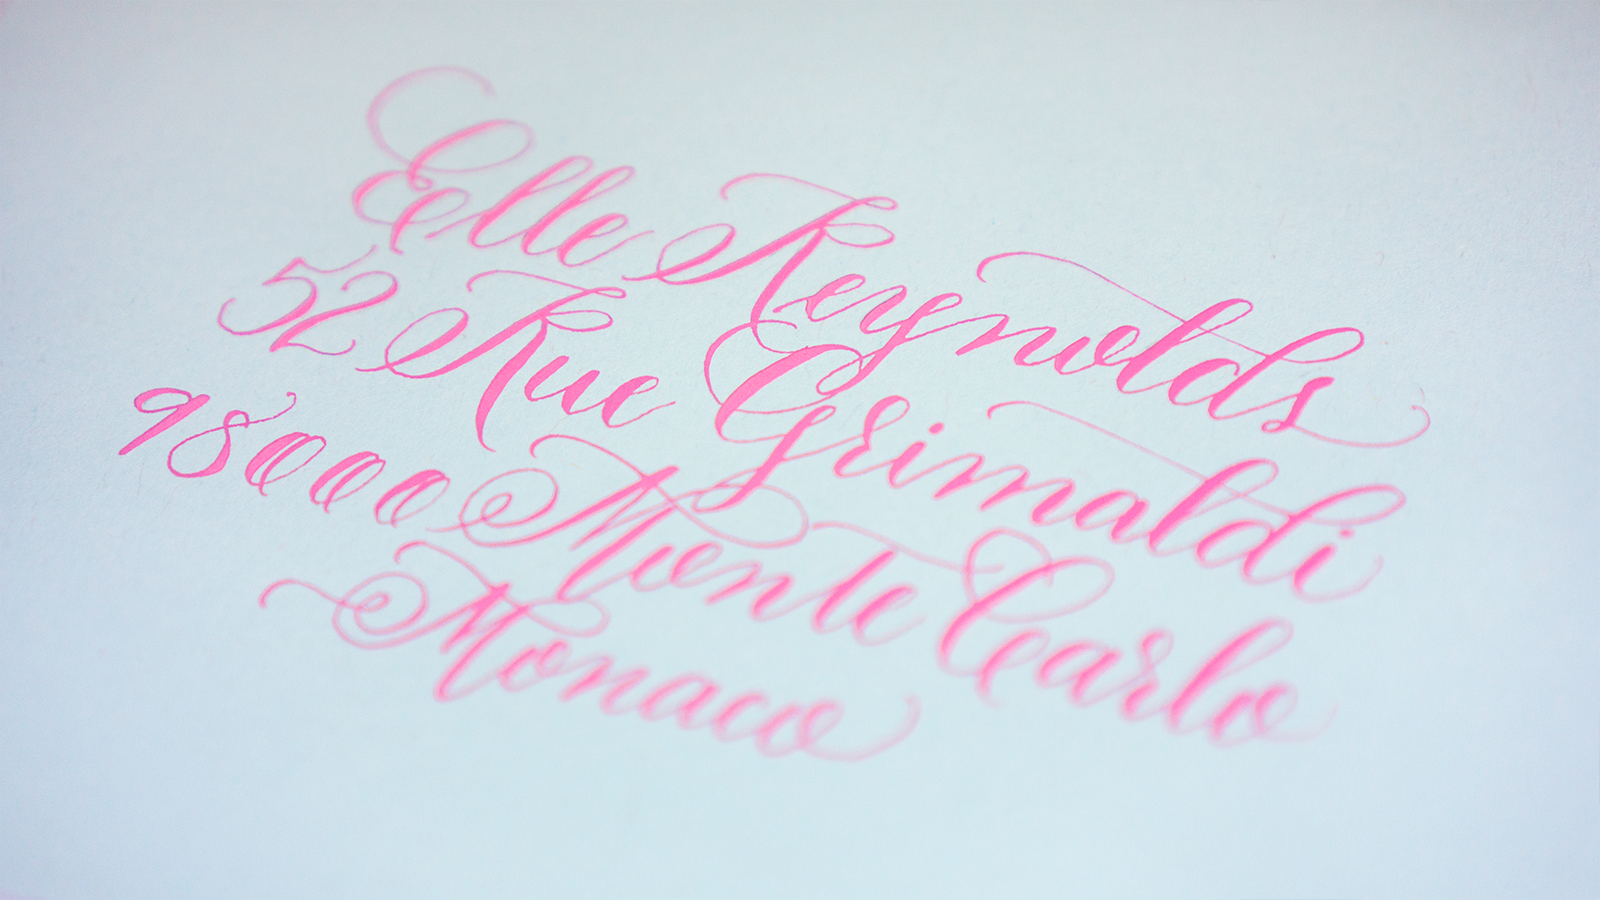 Elle Reynolds
52 Rue Grimaldi
98000 Monte Carlo
Monaco